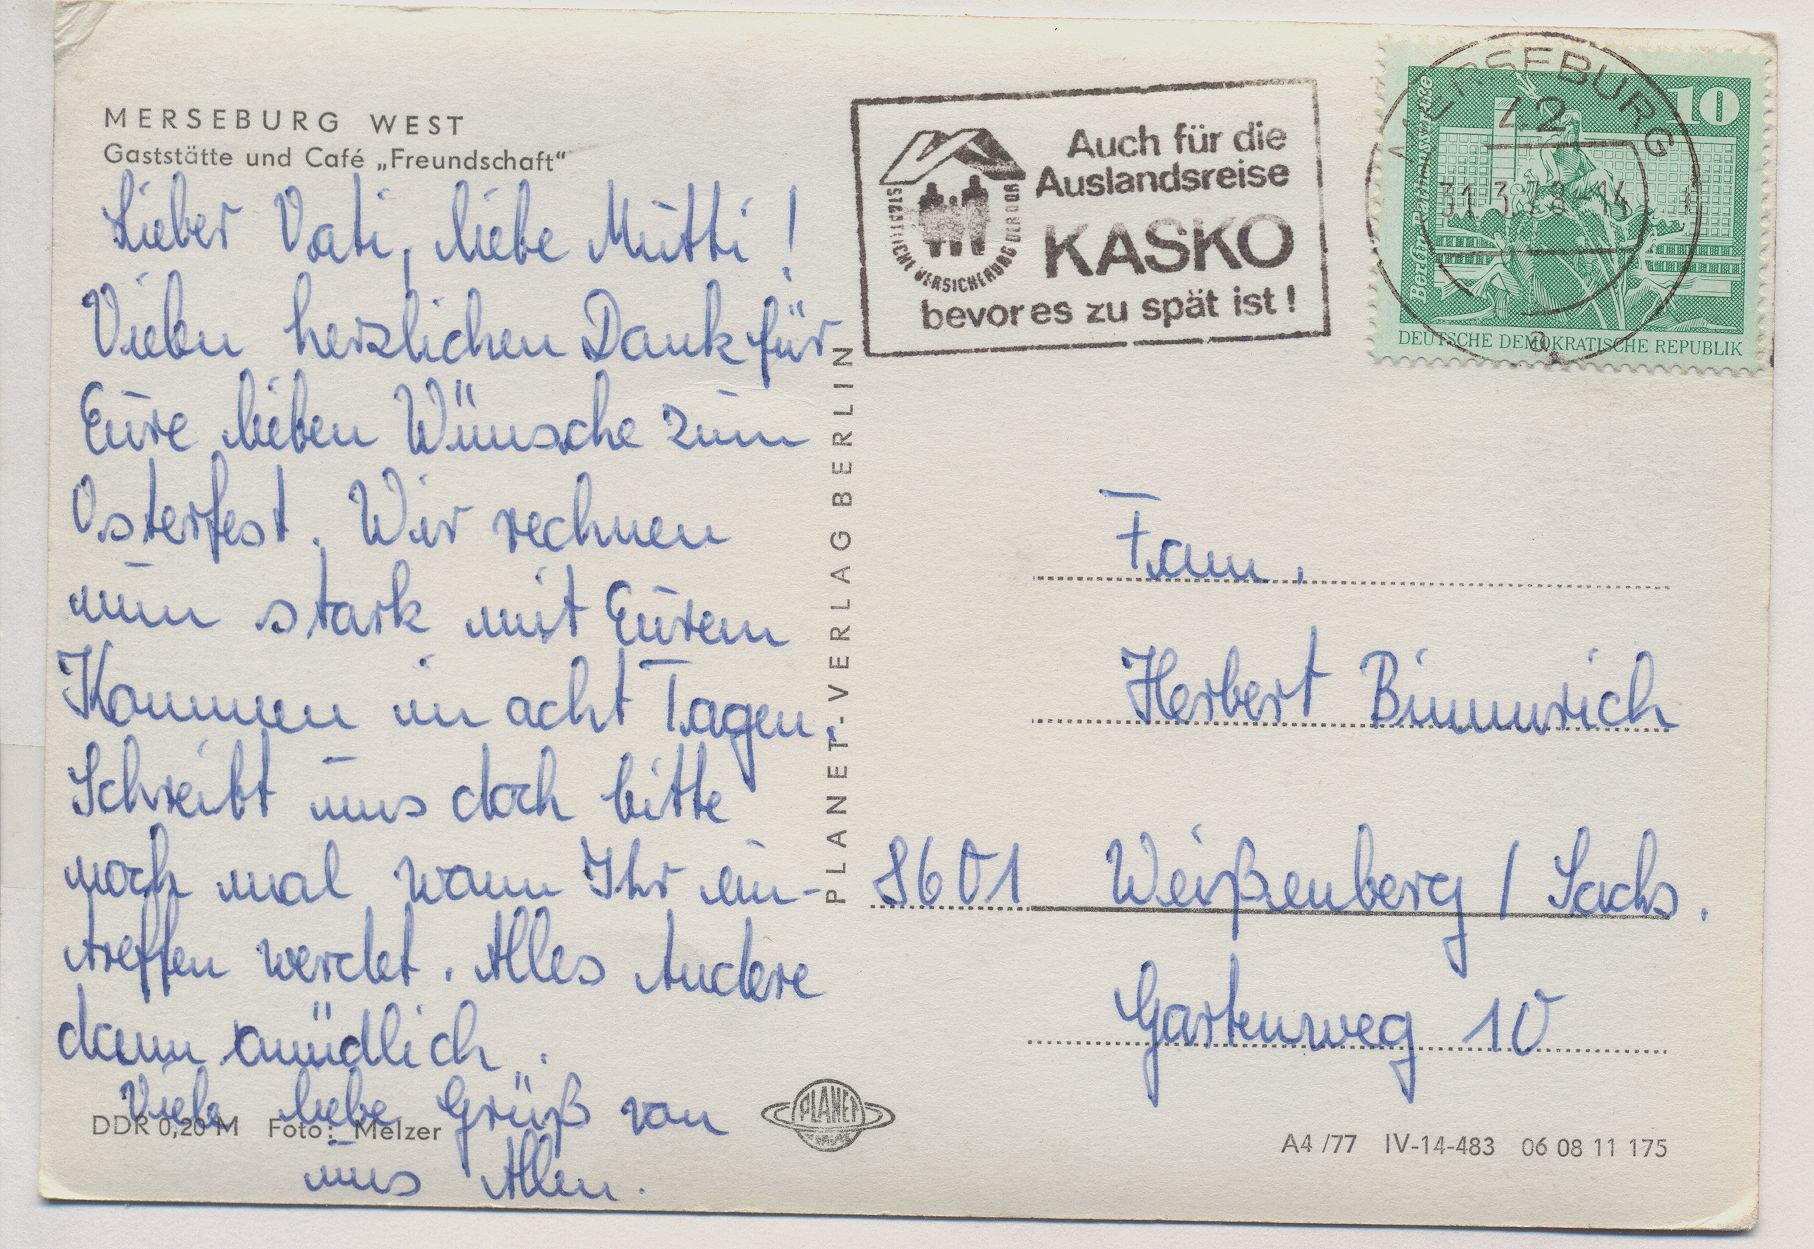 MERSEBURG WEST
Gaststätte und Café „Freundschaft“
Lieber Vati, liebe Mutti!
Vielen herzlichen Dank für
Eure lieben Wünsche zum
Osterfest. Wir rechnen
nun stark mit Eurem
Kommen in acht Tagen.
Schreibt uns doch bitte
noch mal wann Ihr ein-
treffen werdet. Alles Andere
dann müdlich.
Viele liebe Grüß von
uns Allen.
DDR 0,20 M Foto: Melzer
PLANET-VERLAG BERLIN
PLANET
Auch für die
Auslandsreise
KASKO
bevor es zu spät ist!
STAATLICHE VERSICHERUNG DER DDR
MERSEBURG
Z2
31.3.78-14
a
10
DEUTSCHE DEMOKRATISCHE REPUBLIK
Fam.
Herbert Bimmrich
8601 Weißenberg / Sachs.
Gartenweg 10
A4/77 IV-14-483 06 08 11 175